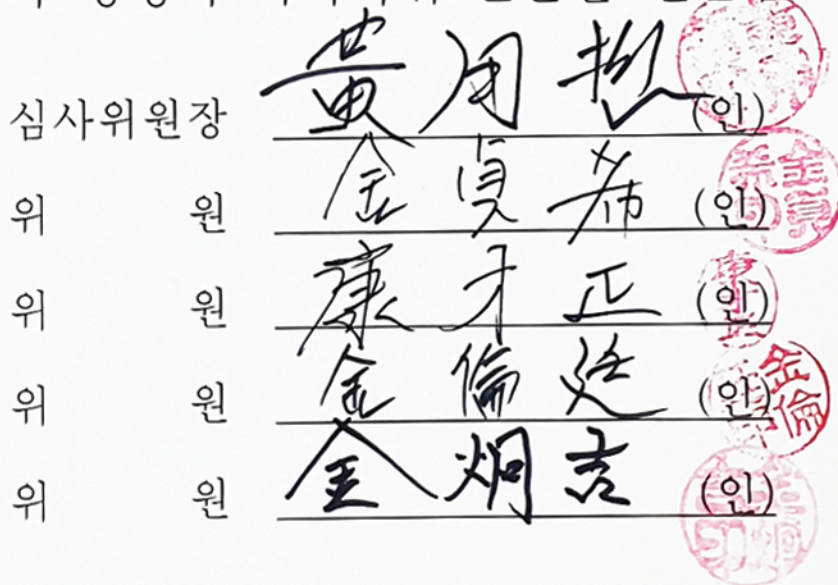 심사위원장 黃周 (인)
위 원 金貞希 (인)
위 원 康才正 (인)
위 원 金倫廷 (인)
위 원 金炯吉 (인)